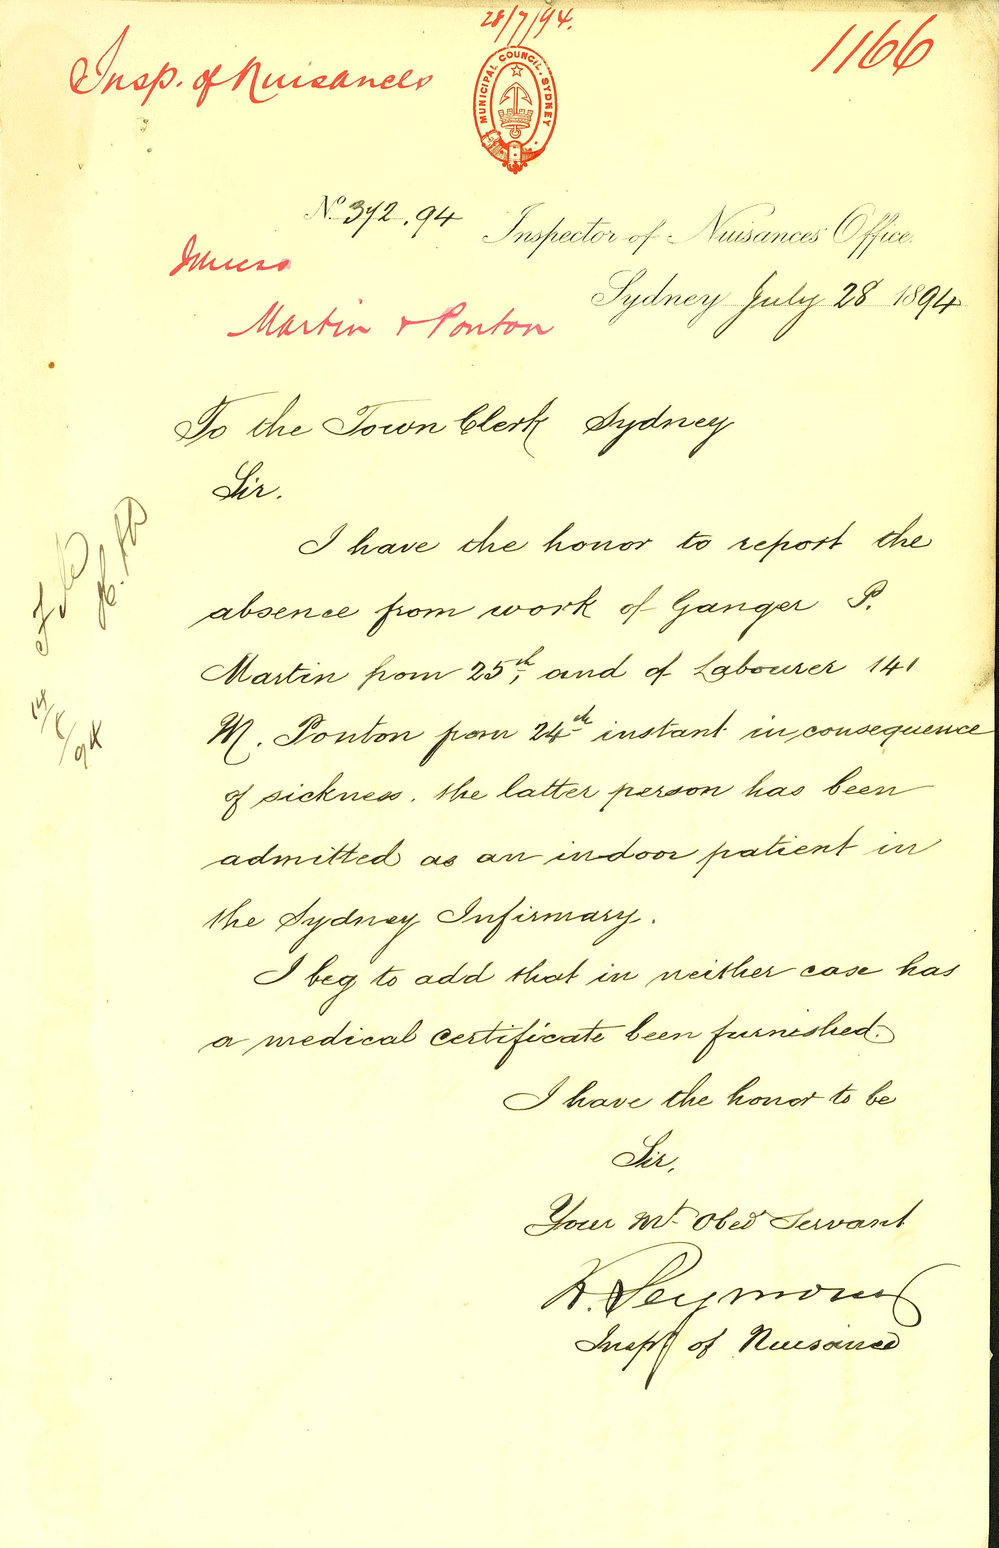 28/7/94.
Insp. of Nuisances
1166
MUNICIPAL COUNCIL. SYDNEY
No. 372.94
Inspector of Nuisances Office.
Sydney July 28 1894
Martin & Ponton
To the Town Clerk Sydney
Sir.
I have the honor to report the
absence from work of Ganger P.
Martin from 25th, and of Labourer 141
M. Ponton from 24th instant in consequence
of sickness. the latter person has been
admitted as an indoor patient in
the Sydney Infirmary.
I beg to add that in neither case has
a medical certificate been furnished.
I have the honor to be
Sir,
Your Mt Obed Servant
R. Seymour
Inspr of Nuisances
14/8/94